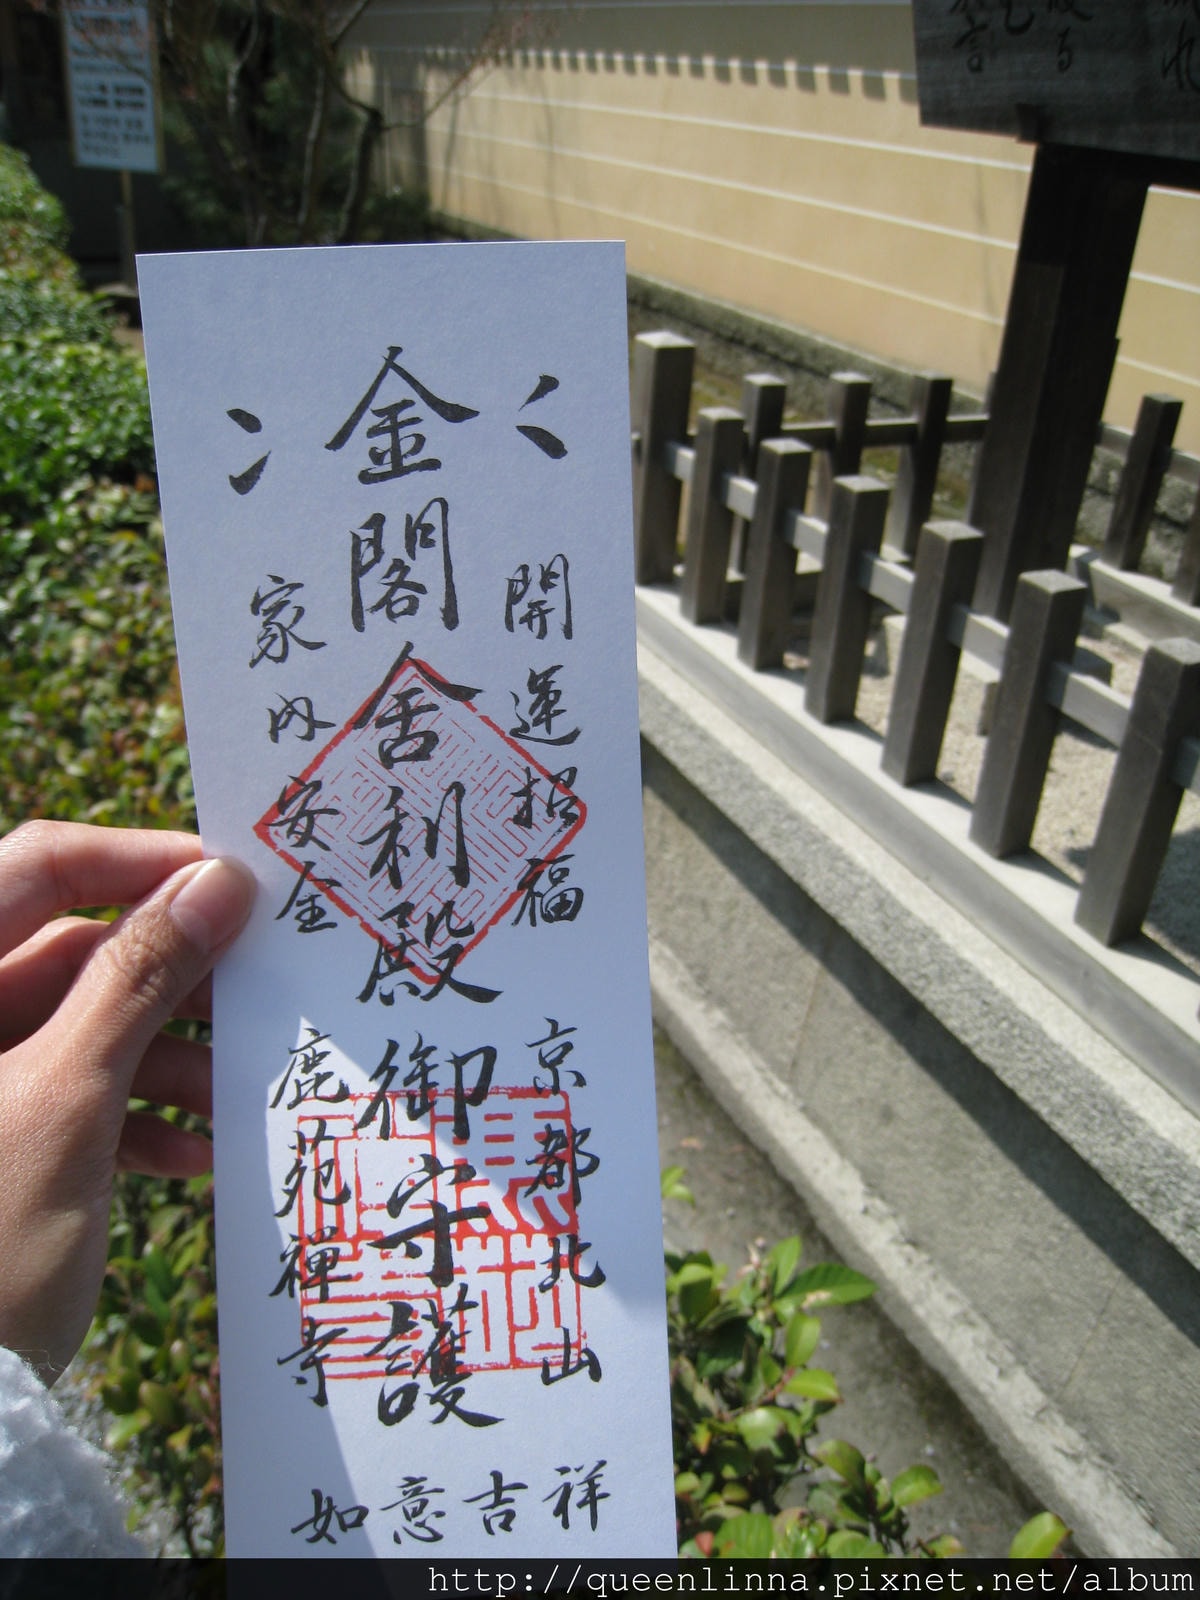 開運招福
京都北山
金閣舎利殿御守護
家内安全
鹿苑禅寺
如意吉祥
http://queenlinna.pixnet.net/album